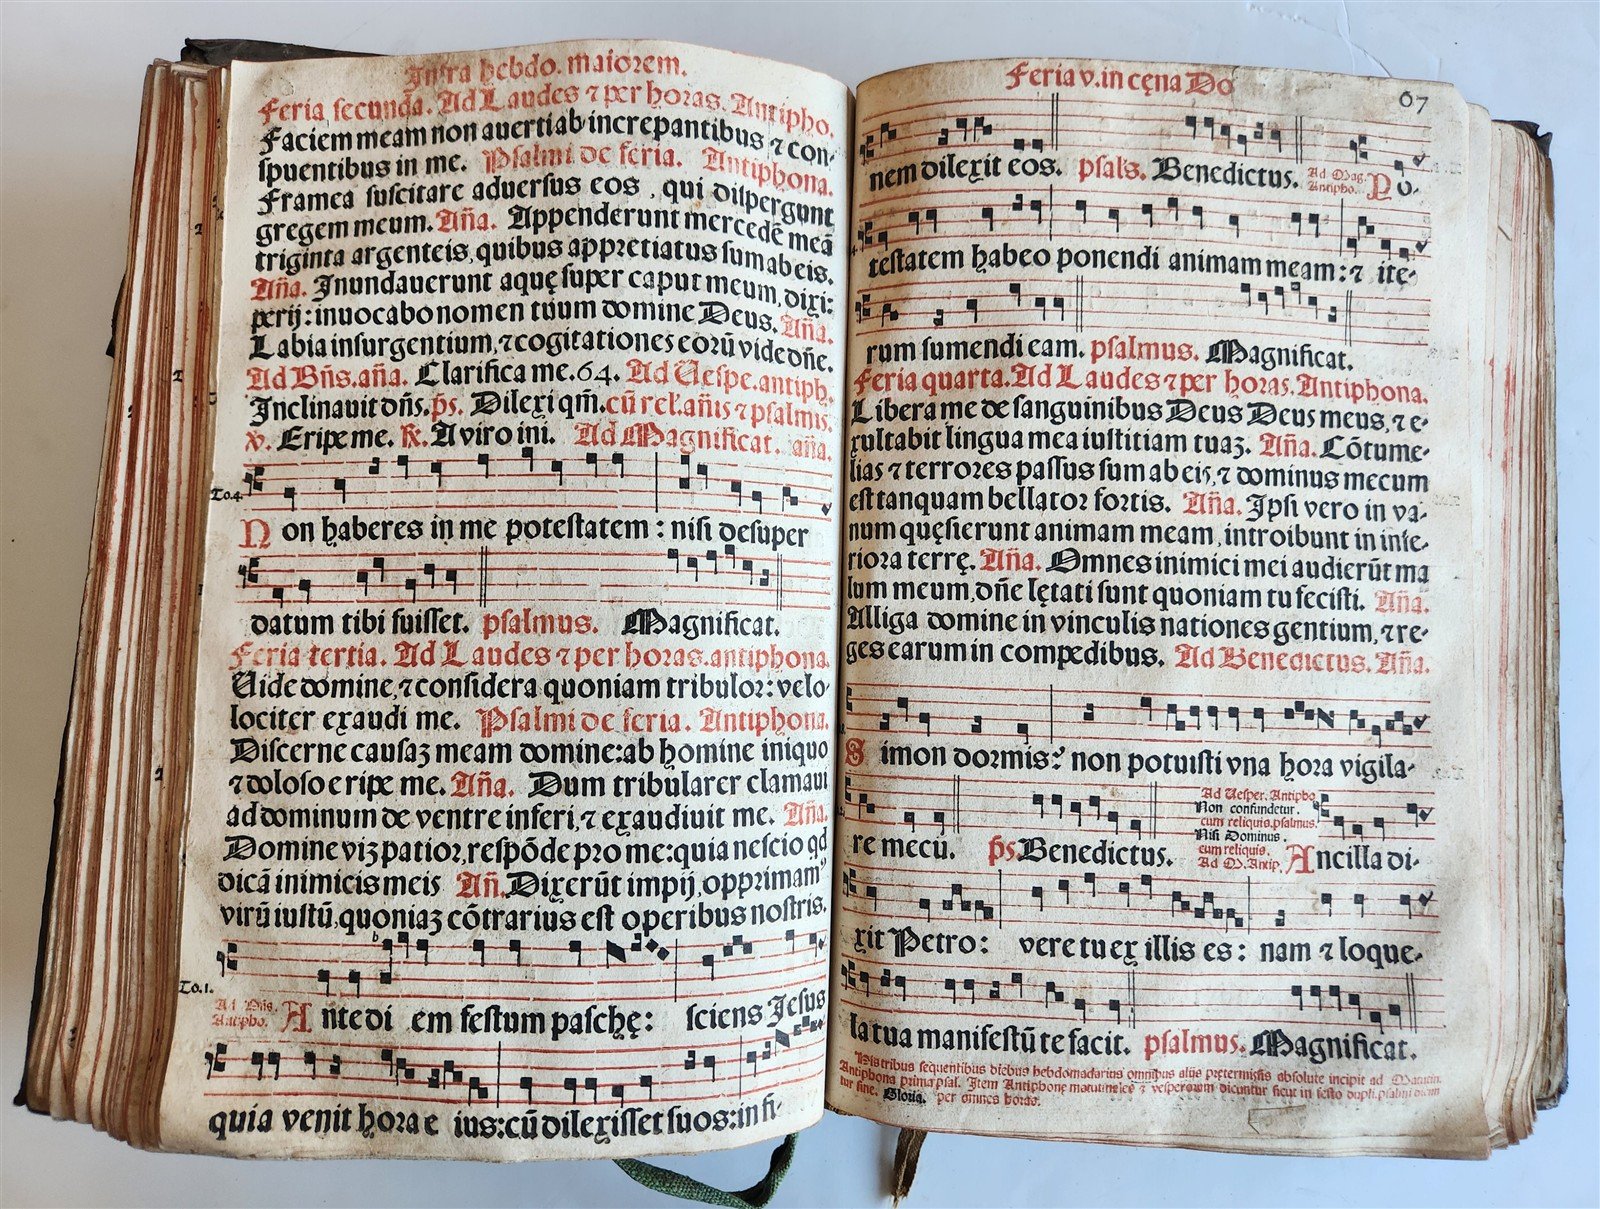 Infra hebdo. maiorem.
Feria secunda. Ad Laudes ⁊ per horas. Antipho.
Faciem meam non auertiab increpantibus ⁊ con-
spuentibus in me. Psalmi de feria. Antiphona.
Framea suscitare aduersus eos, qui dispergunt
gregem meum. Aña. Appenderunt mercedē meā
triginta argenteis, quibus appretiatus sum ab eis.
Aña. Inundauerunt aquę super caput meum, dixi:
perij: inuocabo nomen tuum domine Deus. Aña.
Labia insurgentium, ⁊ cogitationes eorū vide dñe.
Ad Bñs. aña. Clarifica me. 64. Ad Uespe. antiph.
Inclinauit dñs. p̄s. Dilexi qm̄. cū rel. añis ⁊ psalmis.
℣. Eripe me. ℟. A viro ini. Ad Magnificat. aña.
To.4.
Non haberes in me potestatem: nisi desuper
datum tibi fuisset. psalmus. Magnificat.
Feria tertia. Ad Laudes ⁊ per horas. antiphona.
Uide domine, ⁊ considera quoniam tribulor: velo-
lociter exaudi me. Psalmi de feria. Antiphona.
Discerne causaȝ meam domine: ab homine iniquo
⁊ doloso eripe me. Aña. Dum tribularer clamaui
ad dominum de ventre inferi, ⁊ exaudiuit me. Aña.
Domine viȝ patior, respōde pro me: quia nescio qd
dicā inimicis meis Añ. Dixerūt impij, opprimam⁹
virū iustū, quoniaȝ cōtrarius est operibus nostris.
To.1.
Ad Bñs.
Antipho.
Ante di em festum paschę: sciens Jesus
quia venit hora e ius: cū dilexisset suos: in fi-
Feria v. in cęna Do
67
nem dilexit eos. psal's. Benedictus.
Ad Mag.
Antipho.
Po-
testatem habeo ponendi animam meam: ⁊ ite-
rum sumendi eam. psalmus. Magnificat.
Feria quarta. Ad Laudes ⁊ per horas. Antiphona.
Libera me de sanguinibus Deus Deus meus, ⁊ e-
xultabit lingua mea iustitiam tuaȝ. Aña. Cōtume-
lias ⁊ terrores passus sum ab eis, ⁊ dominus mecum
est tanquam bellator fortis. Aña. Ipsi vero in va-
num quęsierunt animam meam, introibunt in infe-
riora terrę. Aña. Omnes inimici mei audierūt ma
lum meum, dñe lętati sunt quoniam tu fecisti. Aña.
Alliga domine in vinculis nationes gentium, ⁊ re-
ges earum in compedibus. Ad Benedictus. Aña.
Simon dormis? non potuisti vna hora vigila-
re mecū. p̄s. Benedictus.
Ad Uesper. Antipho.
Non confundetur.
cum reliquis. psalmus.
Nisi Dominus.
cum reliquis.
Ad M. Antip.
Ancilla di-
xit Petro: vere tu ex illis es: nam ⁊ loque-
la tua manifestū te facit. psalmus. Magnificat.
His tribus sequentibus diebus hebdomadarius omnibus alijs prętermissis absolute incipit ad Matutin.
Antiphona prima psal. Item Antiphonę matutinales ⁊ vesperarum dicuntur sicut in festo dupli. psalmi
tur sine. Gloria. per omnes horas.